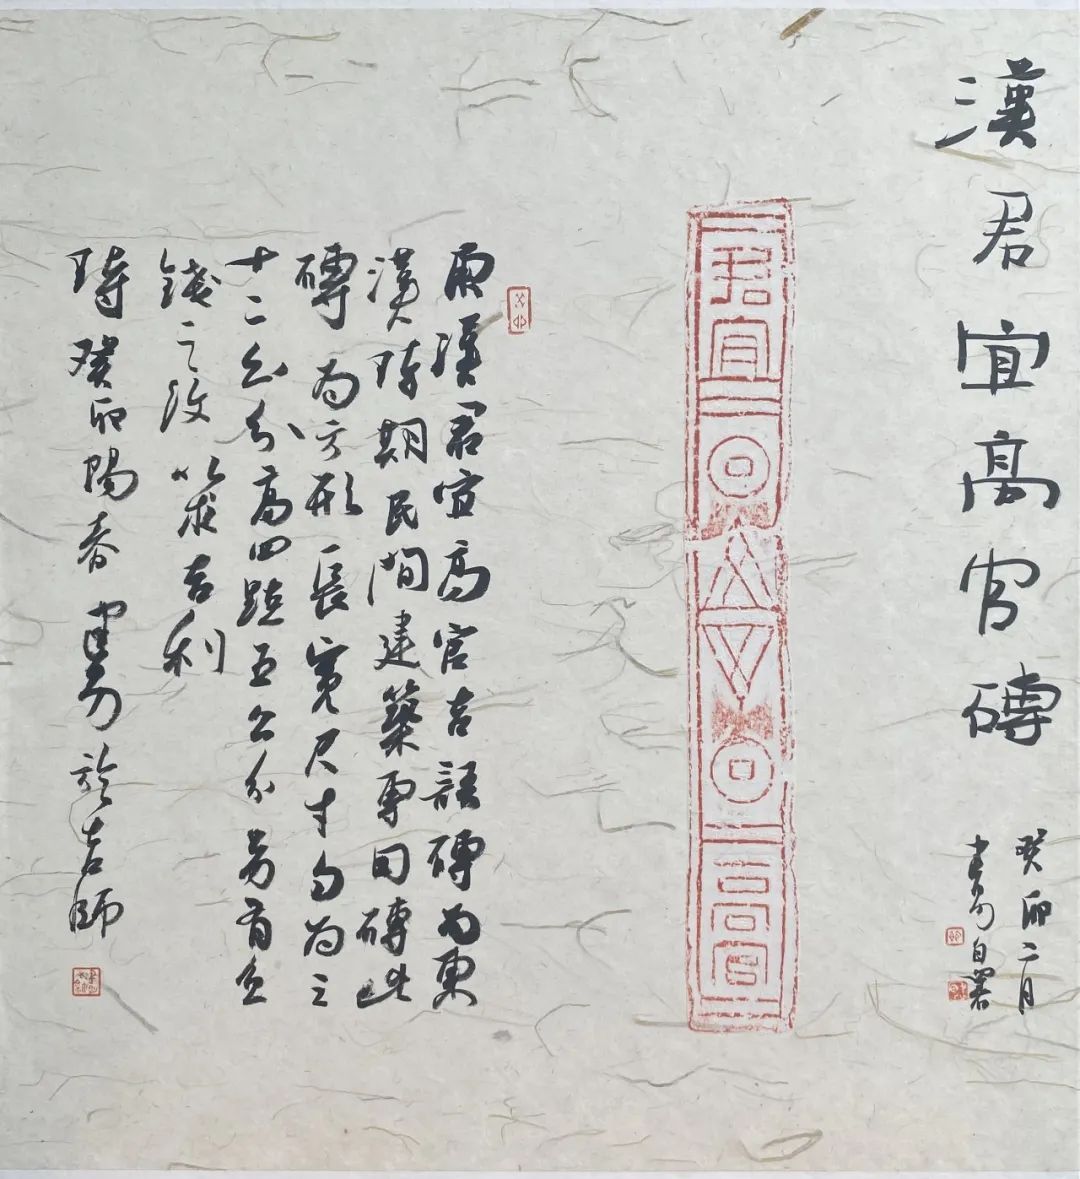 漢君宜高官磚
癸卯二月
自署
君宜
高官
漢君宜高官吉語磚為東
漢時期民間建築專用磚此
磚為方形長寬尺寸勻為三
十二公分高四點五公分另有五
錢之紋以求吉利
時癸卯陽春於師